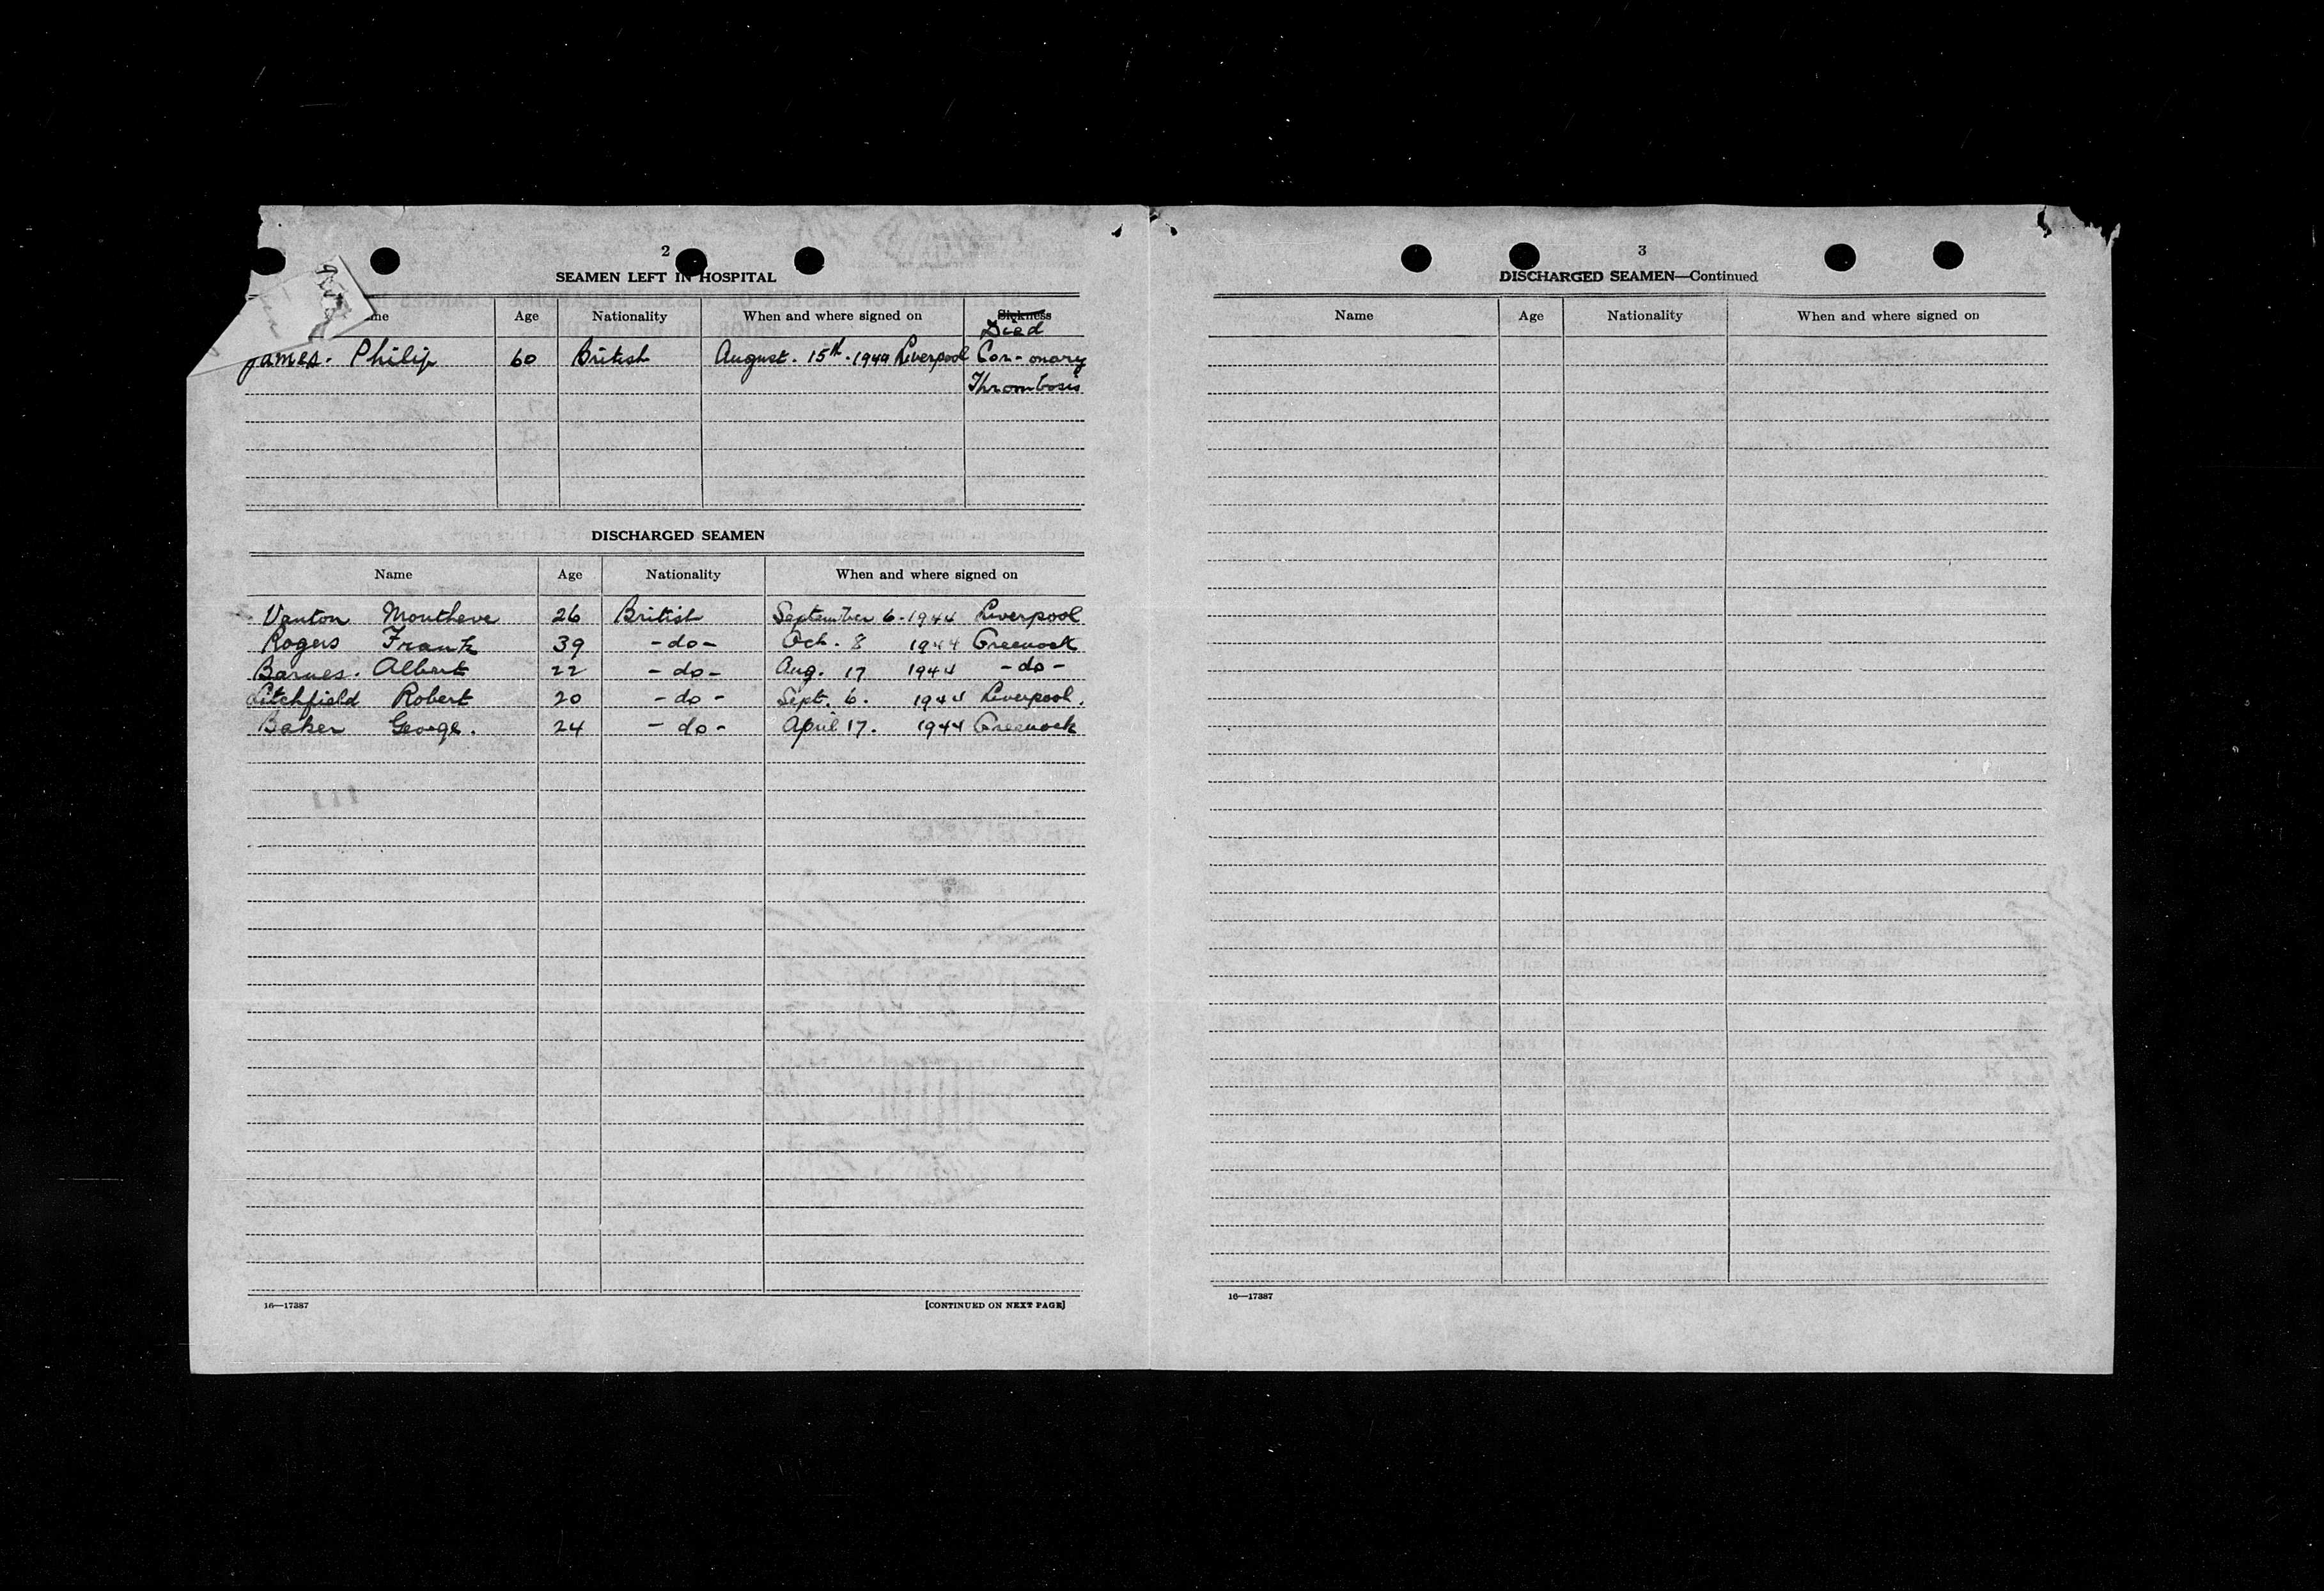 2
SEAMEN LEFT IN HOSPITAL
me Age Nationality When and where signed on Sickness
Died
James. Philip 60 British August. 15th. 1944 Liverpool Cor-onary
Thrombosis
DISCHARGED SEAMEN
Name Age Nationality When and where signed on
Vanton Moutheve 26 British September 6. 1944 Liverpool
Rogers Frank 39 -do- Oct. 8 1944 Greenock
Barnes. Albert 22 -do- Aug. 17 1944 -do-
Litchfield Robert 20 -do- Sept. 6. 1944 Liverpool.
Baker George. 24 -do- April 17. 1944 Greenock
16—17387 [CONTINUED ON NEXT PAGE]
3
DISCHARGED SEAMEN—Continued
Name Age Nationality When and where signed on
16—17387